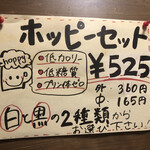 ホッピーセット
hoppy
・低カロリー
・低糖質
・プリン体ゼロ
¥525
外 360円
中 165円
白と黒の2種類から
お選び下さい!